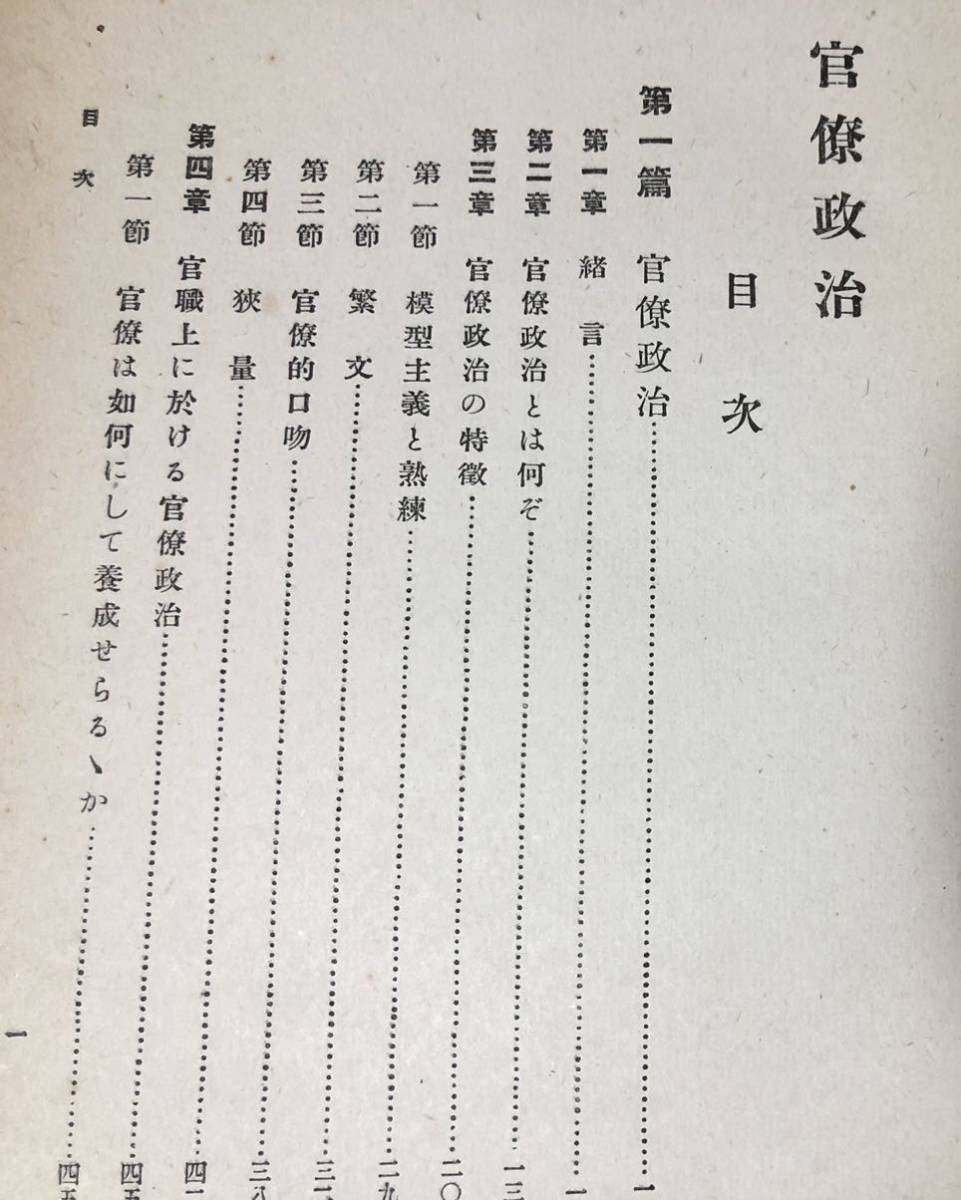 官僚政治
目次
第一篇 官僚政治……一
第一章 緒言……一
第二章 官僚政治とは何ぞ……一三
第三章 官僚政治の特徴……二〇
第一節 模型主義と熟練……二九
第二節 繁文……三
第三節 官僚的口吻……三八
第四節 狹量……四二
第四章 官職上に於ける官僚政治……四五
第一節 官僚は如何にして養成せらるゝか……四五
目次
一